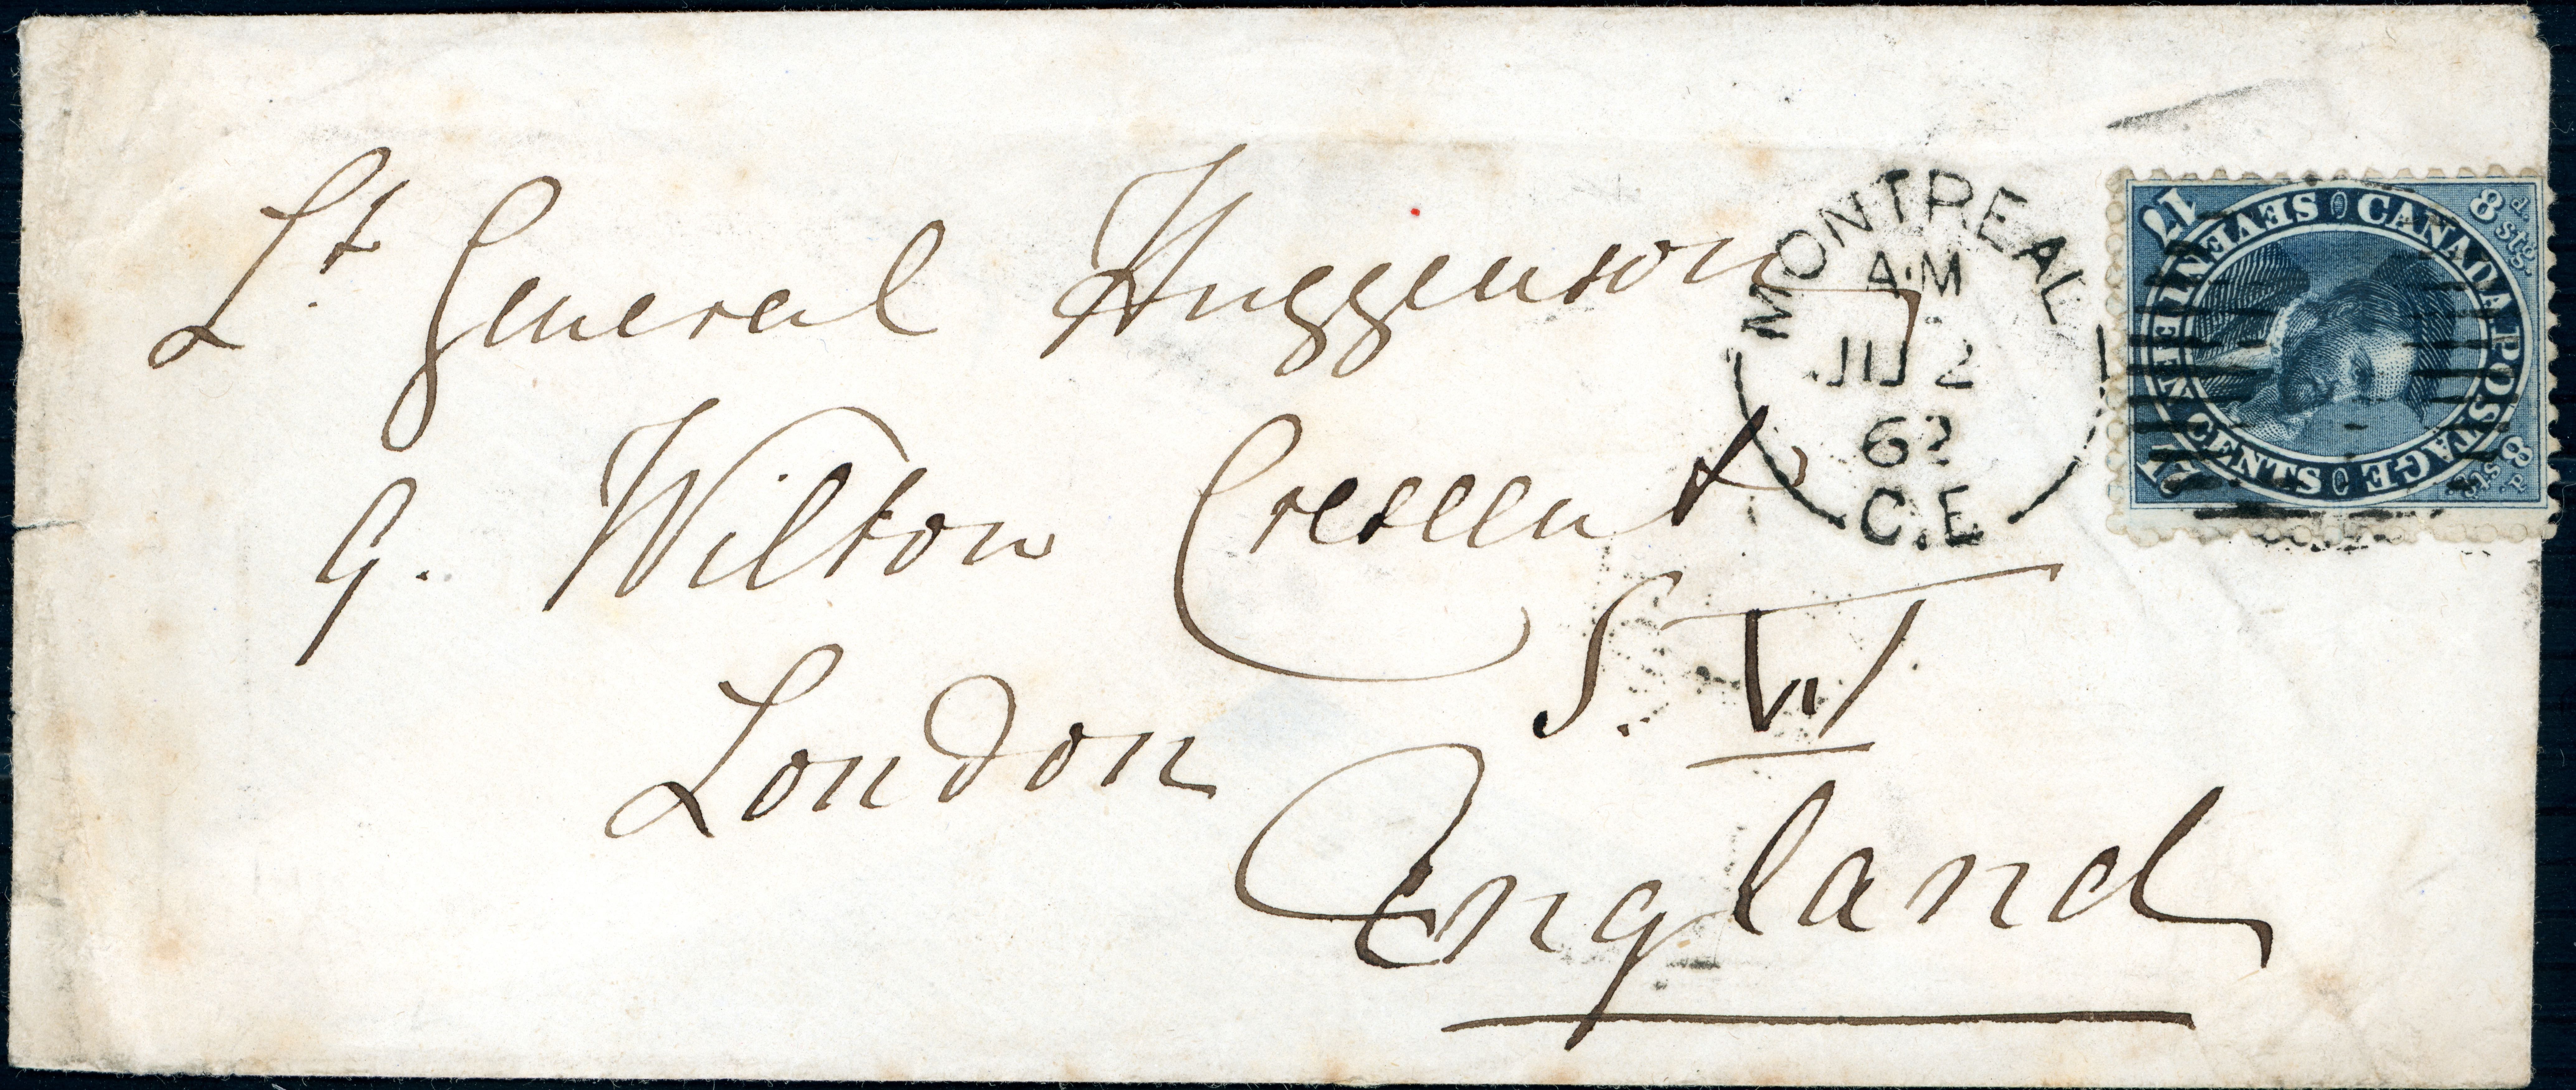 Lt. General Huggenson
9. Wilton Crescent
S. W
London
England
MONTREAL
AM
JU 2
62
C.E
CANADA POSTAGE
SEVENTEEN CENTS
17
17
8 d. stg.
8 d. stg.